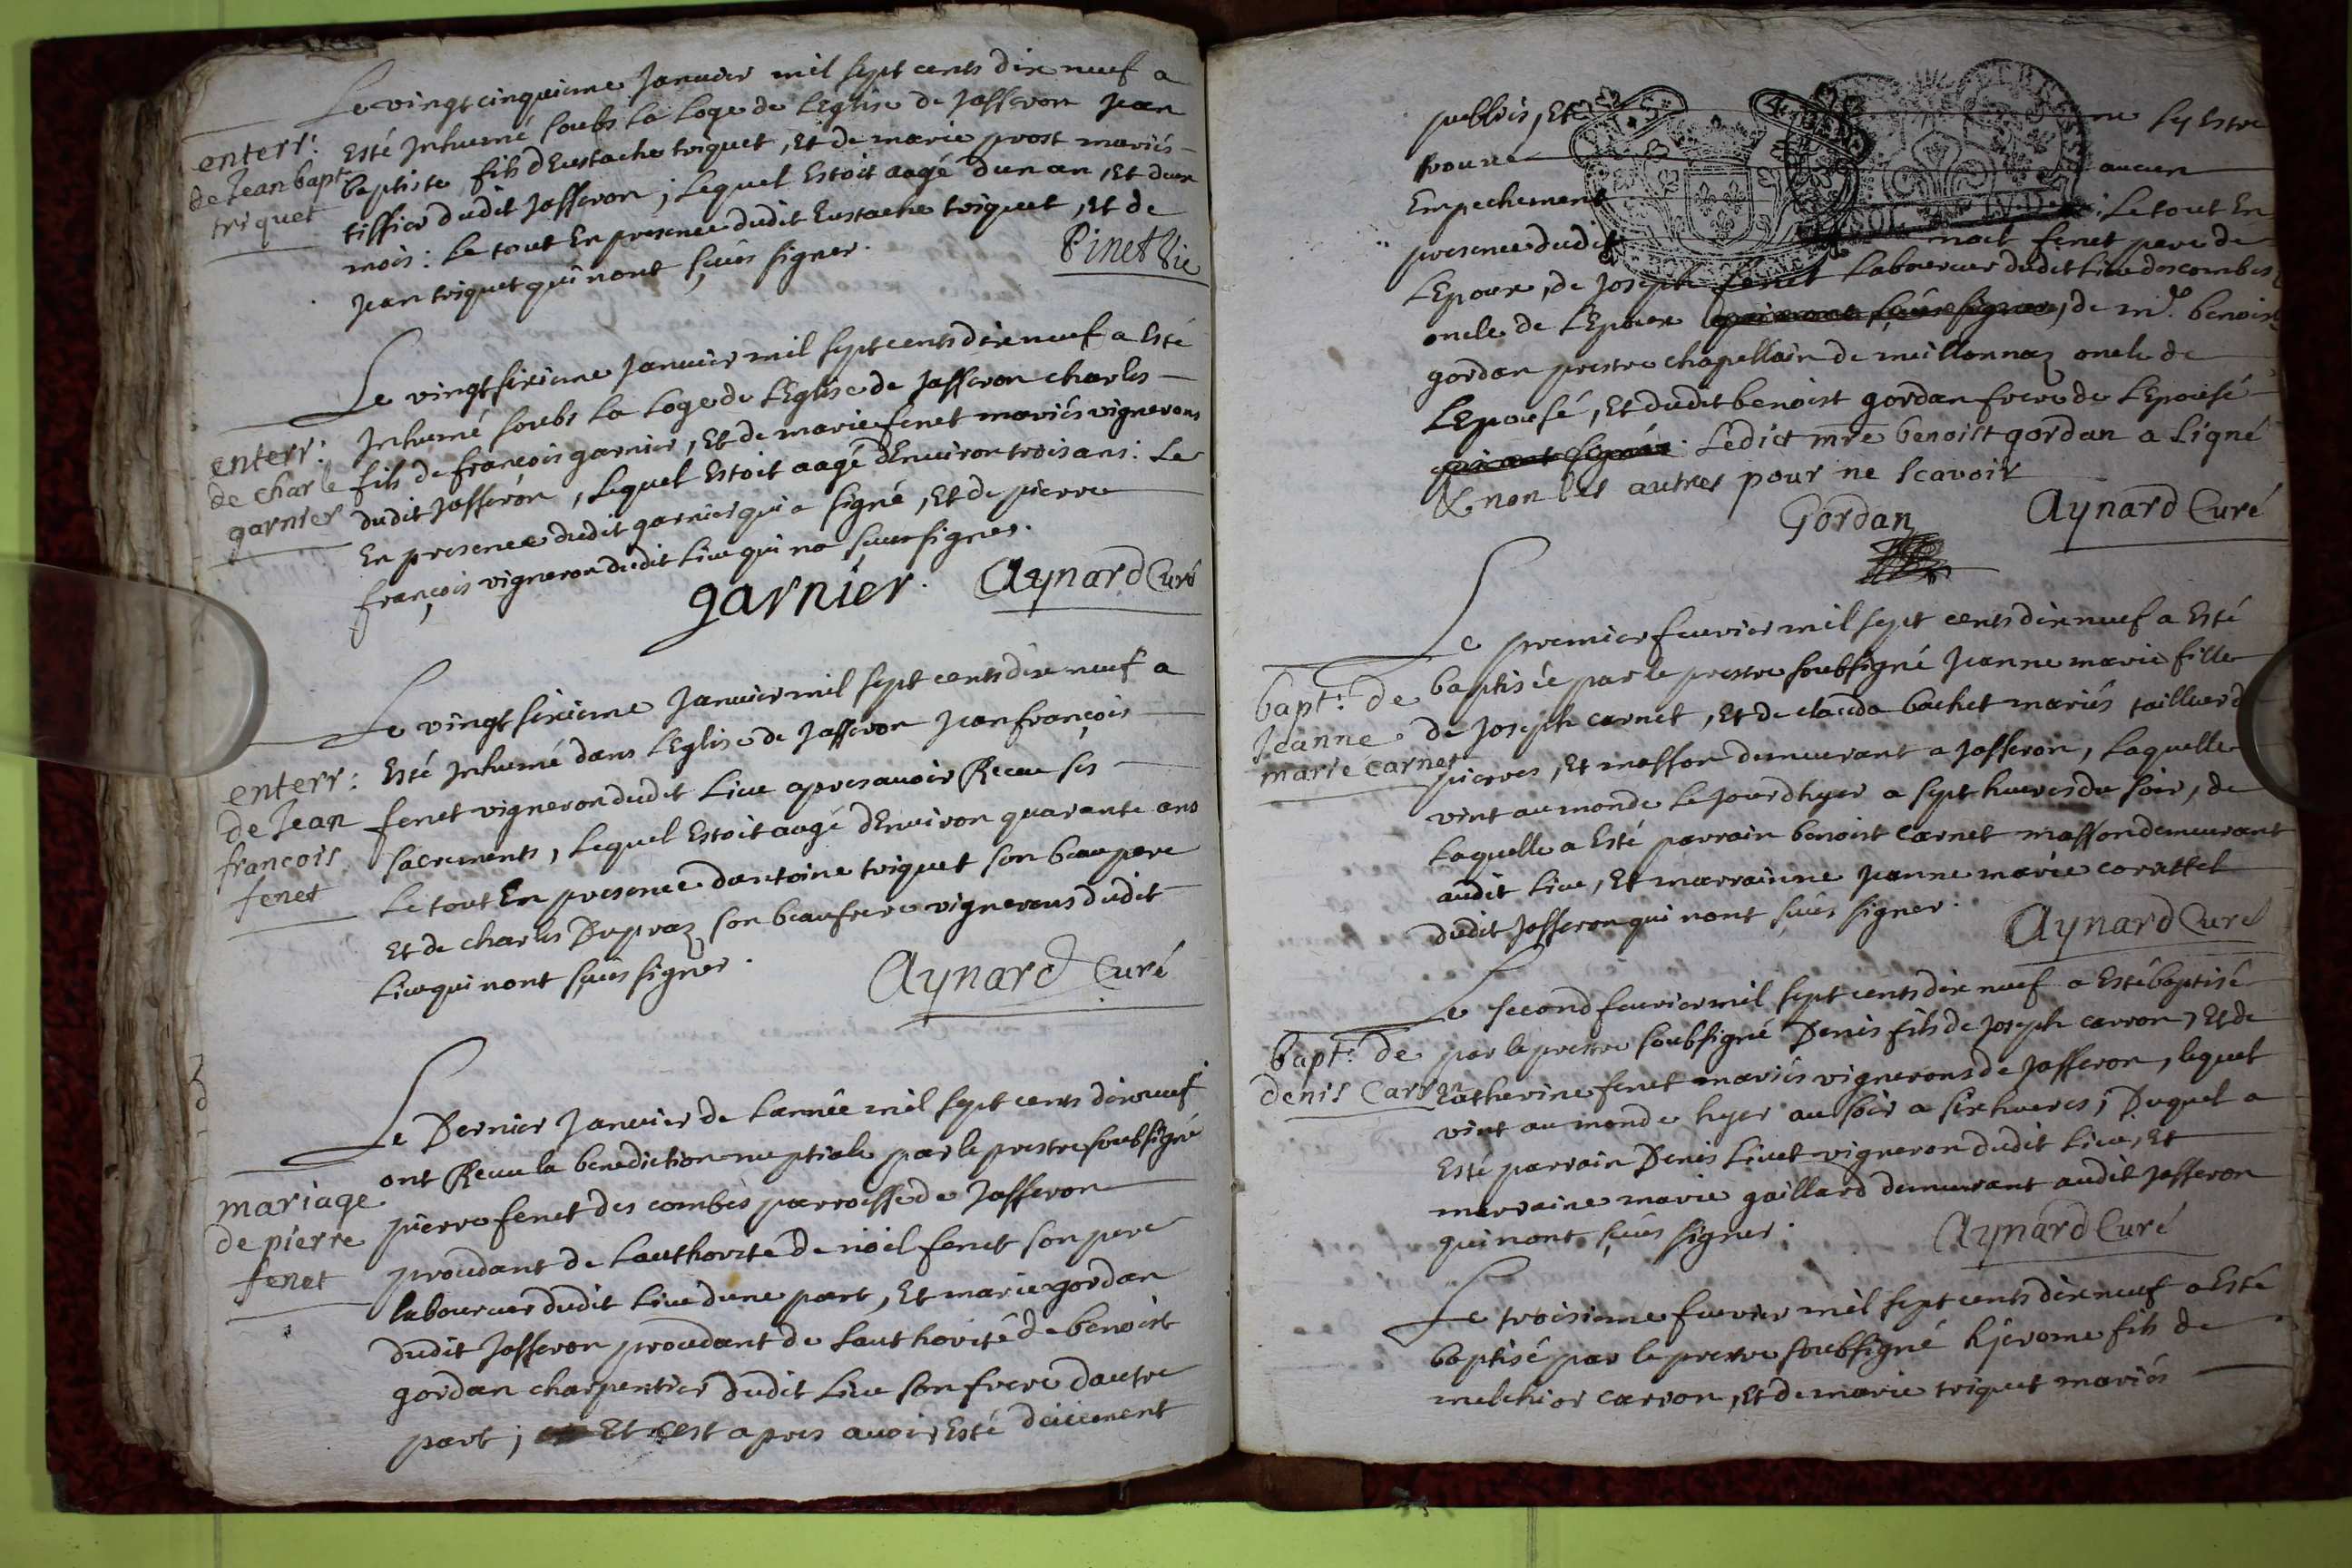 Le vingt cinquieme Janvier mil sept cents dix neuf a
enterr: Esté Inhumé soubs La Loge de L'Eglise de Jasseron Jean
de Jean bapt baptiste fils d'Eustache triquet, Et de marie prost mariés
triquet tissier dudit Jasseron; Lequel Estoit aagé dun an, Et deux
mois: Le tout En presence dudit Eustache triquet, Et de
Jean triquet qui nont sçues signer.
Pinet Vic
Le vingt sixieme Janvier mil sept cents dix neuf a Esté
Inhumé soubs La Loge de L'Eglise de Jasseron charles
enterr: fils de françois garnier, Et de marie fenet mariés vignerons
de charle dudit Jasseron, Lequel Estoit aagé dEnviron trois ans: Le
garnier En presence dudit garnier qui a signé, Et de pierre
françois vigneron dudit Lieu qui na sceu signer.
garnier. Aynard Curé
Le vingt sixieme Janvier mil sept cents dix neuf a
enterr: Esté Inhumé dans L'Eglise de Jasseron Jean françois
de Jean fenet vigneron dudit Lieu apres avoir Receu ses
francois sacrements, Lequel Estoit aagé dEnviron quarante ans
fenet Le tout En presence dantoine triquet son beau pere
Et de charles Dupraz son beau frere vignerons dudit
Lieu qui nont sçues signer.
Aynard Curé
Le Dernier Janvier de Lannée mil sept cents dix neuf
ont Receu la benediction nuptiale par le prestre soubsigné
mariage pierre fenet des combes parroisse de Jasseron
de pierre procedant de Lauthorité de noel fenet son pere
fenet laboureur dudit Lieu dune part, Et marie gordan
dudit Jasseron procedant de Lauthorité de benoist
gordan charpentier dudit Lieu son frere dautre
part; Et cest apres avoir Esté deüement
publiés, Et ne sy Estre
trouué aucun
Empechement : Le tout En
presence dudit noel fenet pere de
LEpoux, de Joseph fenet Laboureur dudit Lieu des combes
oncle de LEpoux qui nont sçues signer, de mre. benoist
gordan prestre chapellain de meillonnaz oncle de
LEpousé, Et dudit benoist gordan frere de LEpousé
qui ont signés. Ledict mre benoist gordan a signé
& non les autres pour ne scavoir
Gordan Aynard Curé
Le premier feuvrier mil sept cents dix neuf a Esté
bapt: de baptisée par le prestre soubsigné Jeanne marie fille
Jeanne de Joseph carnet, Et de clauda bachet mariés tailleur d
marie carnet pierres, Et masson demeurant a Jasseron, Laquelle
vint au monde Le Jourdhyer a sept heures du soir, de
Laquelle a Esté parrain benoist carnet masson demeurant
audit Lieu, Et marrainne Jeanne marie corettel
dudit Jasseron qui nont sçues signer.
Aynard Curé
Le second feuvrier mil sept cents dix neuf a Esté baptisé
bapt: de par le prestre soubsigné Denis fils de Joseph carron, Et de
denis Carron Catherine fenet mariés vignerons de Jasseron, lequel
vint au monde hyer au soir a six heures; Duquel a
Esté parrain Denis Livet vigneron dudit Lieu, Et
marraine marie gaillard demeurant audit Jasseron
qui nont sçues signer.
Aynard Curé
Le troisieme feuvrier mil sept cents dix neuf a Esté
baptisé par le prestre soubsigné hjerome fils de
melchior carron, Et de marie triquet mariés